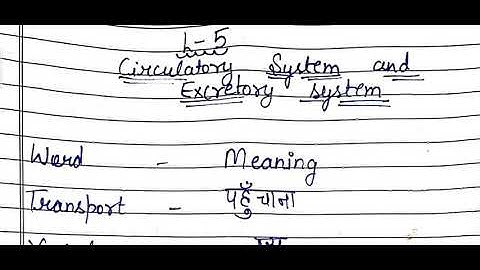 L-5
Circulatory System and
Excretory system
Word - Meaning
Transport - पहुँचाना